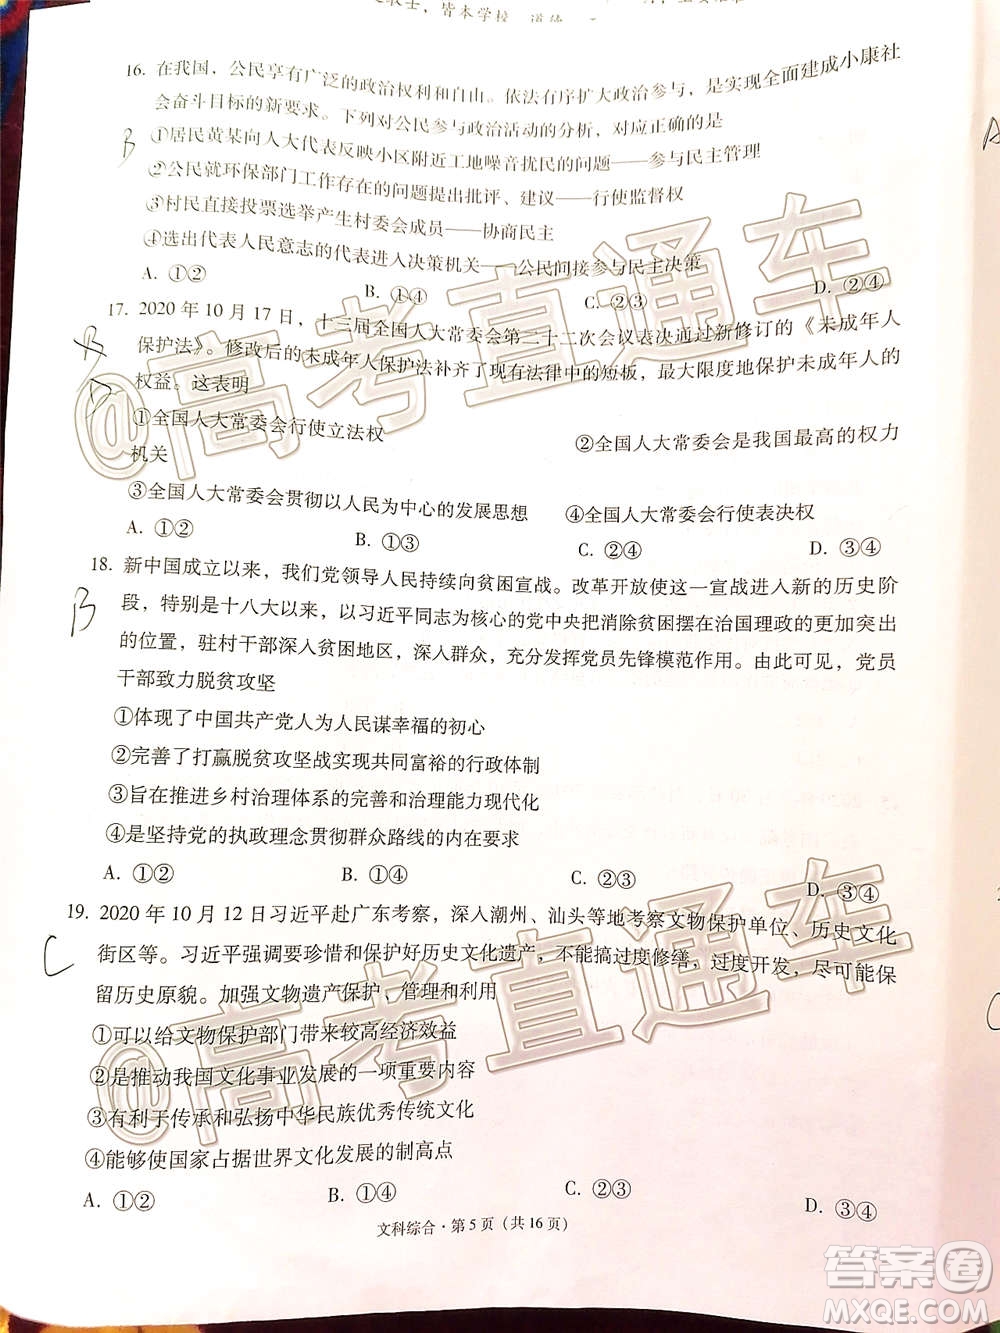 士，皆本学校
16. 在我国，公民享有广泛的政治权利和自由。依法有序扩大政治参与，是实现全面建成小康社
会奋斗目标的新要求。下列对公民参与政治活动的分析，对应正确的是
B
①居民黄某向人大代表反映小区附近工地噪音扰民的问题——参与民主管理
②公民就环保部门工作存在的问题提出批评、建议——行使监督权
③村民直接投票选举产生村委会成员——协商民主
④选出代表人民意志的代表进入决策机关——公民间接参与民主决策
A. ①② B. ①④ C. ②③ D. ②④
17. 2020 年 10 月 17 日，十三届全国人大常委会第二十二次会议表决通过新修订的《未成年人
保护法》。修改后的未成年人保护法补齐了现有法律中的短板，最大限度地保护未成年人的
权益。这表明
D
①全国人大常委会行使立法权 ②全国人大常委会是我国最高的权力
机关
③全国人大常委会贯彻以人民为中心的发展思想 ④全国人大常委会行使表决权
A. ①② B. ①③ C. ②④ D. ③④
18. 新中国成立以来，我们党领导人民持续向贫困宣战。改革开放使这一宣战进入新的历史阶
段，特别是十八大以来，以习近平同志为核心的党中央把消除贫困摆在治国理政的更加突出
B
的位置，驻村干部深入贫困地区，深入群众，充分发挥党员先锋模范作用。由此可见，党员
干部致力脱贫攻坚
①体现了中国共产党人为人民谋幸福的初心
②完善了打赢脱贫攻坚战实现共同富裕的行政体制
③旨在推进乡村治理体系的完善和治理能力现代化
④是坚持党的执政理念贯彻群众路线的内在要求
A. ①② B. ①④ C. ②③ D. ③④
19. 2020 年 10 月 12 日习近平赴广东考察，深入潮州、汕头等地考察文物保护单位、历史文化
街区等。习近平强调要珍惜和保护好历史文化遗产，不能搞过度修缮，过度开发，尽可能保
C
留历史原貌。加强文物遗产保护、管理和利用
①可以给文物保护部门带来较高经济效益
②是推动我国文化事业发展的一项重要内容
③有利于传承和弘扬中华民族优秀传统文化
④能够使国家占据世界文化发展的制高点
A. ①② B. ①④ C. ②③ D. ③④
文科综合·第 5 页（共 16 页）
@高考直通车
@高考直通车
答案圈
MXQE.COM